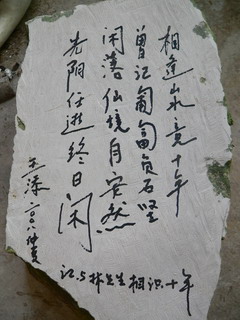 相逢山亭十年
曾记匍匐负石坚
闲落仙境自安然
光阴任逝终日闲
江与林先生相识十年